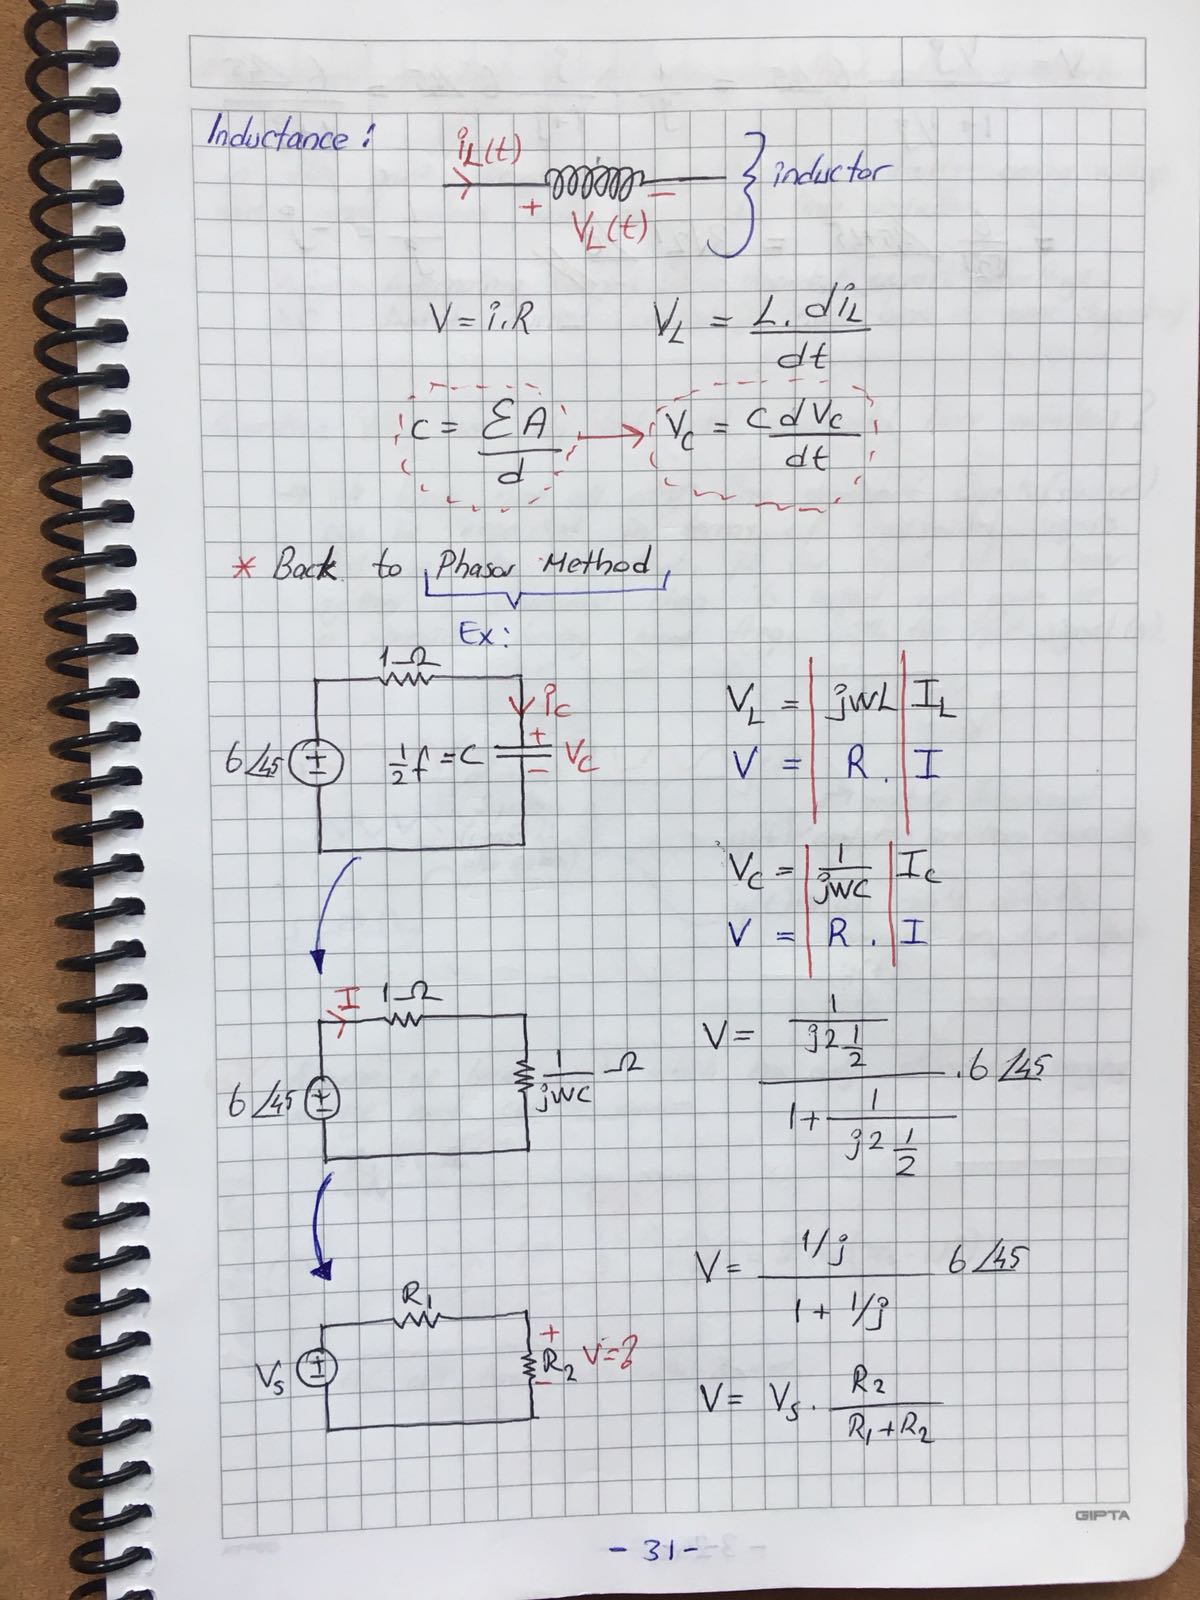 Inductance :
iL(t)
+ −
VL(t)
inductor
V = i.R
VL = L. diL / dt
C = ƐA / d → Vc = C dVc / dt
* Back to Phasor Method
Ex:
1Ω
ic
6∠45 + −
½f = C
+
Vc
−
VL = | jwL | IL
V = | R . | I
Vc = | 1/jwc | Ic
V = | R . | I
I 1Ω
6∠45 + −
1/jwc Ω
V = (1 / j2 ½) / (1 + 1 / j2 ½) . 6∠45
V = (1/j) / (1 + 1/j) 6∠45
R1
Vs + −
+
R2 V=?
−
V = Vs . R2 / (R1+R2)
GIPTA
- 31 -